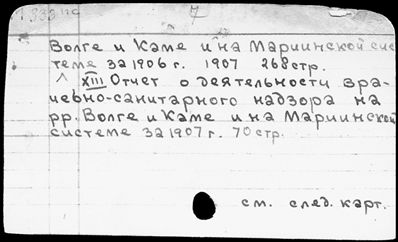 7
Волге и Каме и на Мариинской сис
теме за 1906 г. 1907 268 стр.
^ XIII Отчет о деятельности вра-
чебно-санитарного надзора на
рр. Волге и Каме и на Мариинской
системе за 1907 г. 70 стр.
см. след. карт.